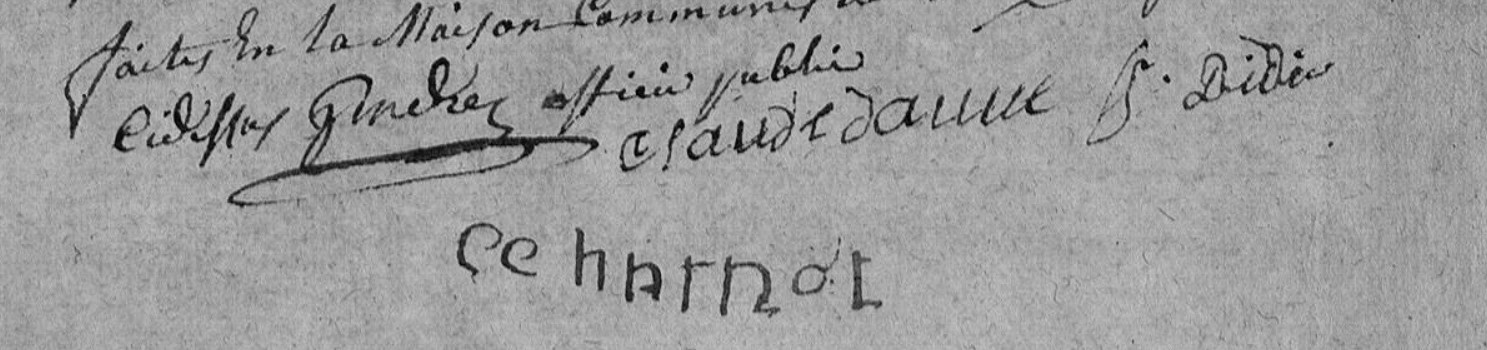 faites En la Maison Commune
Cidessus Gindrez officier public
claude daune f. Didier
ce harnot